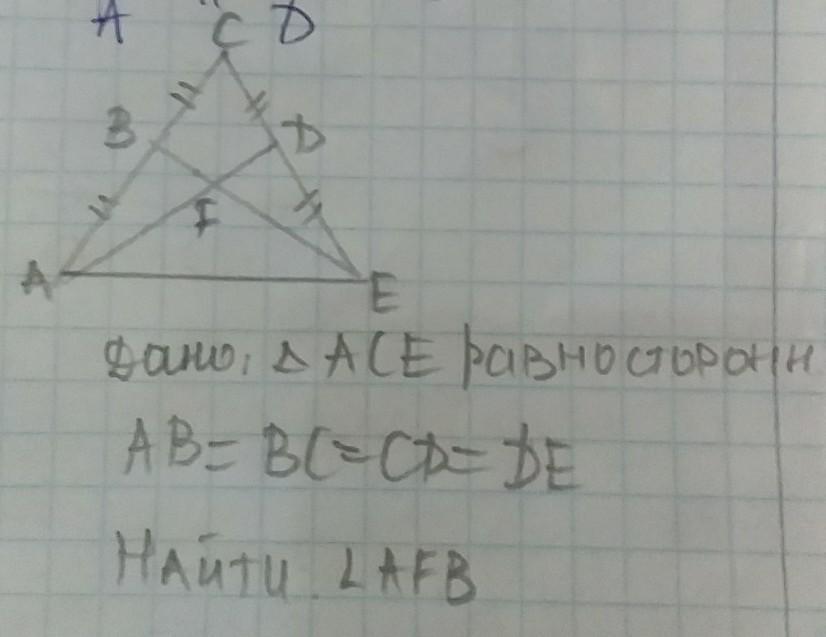 A C D
B D
F
A E
Дано: △ ACE равносторонн
AB = BC = CD = DE
Найти ∠AFB